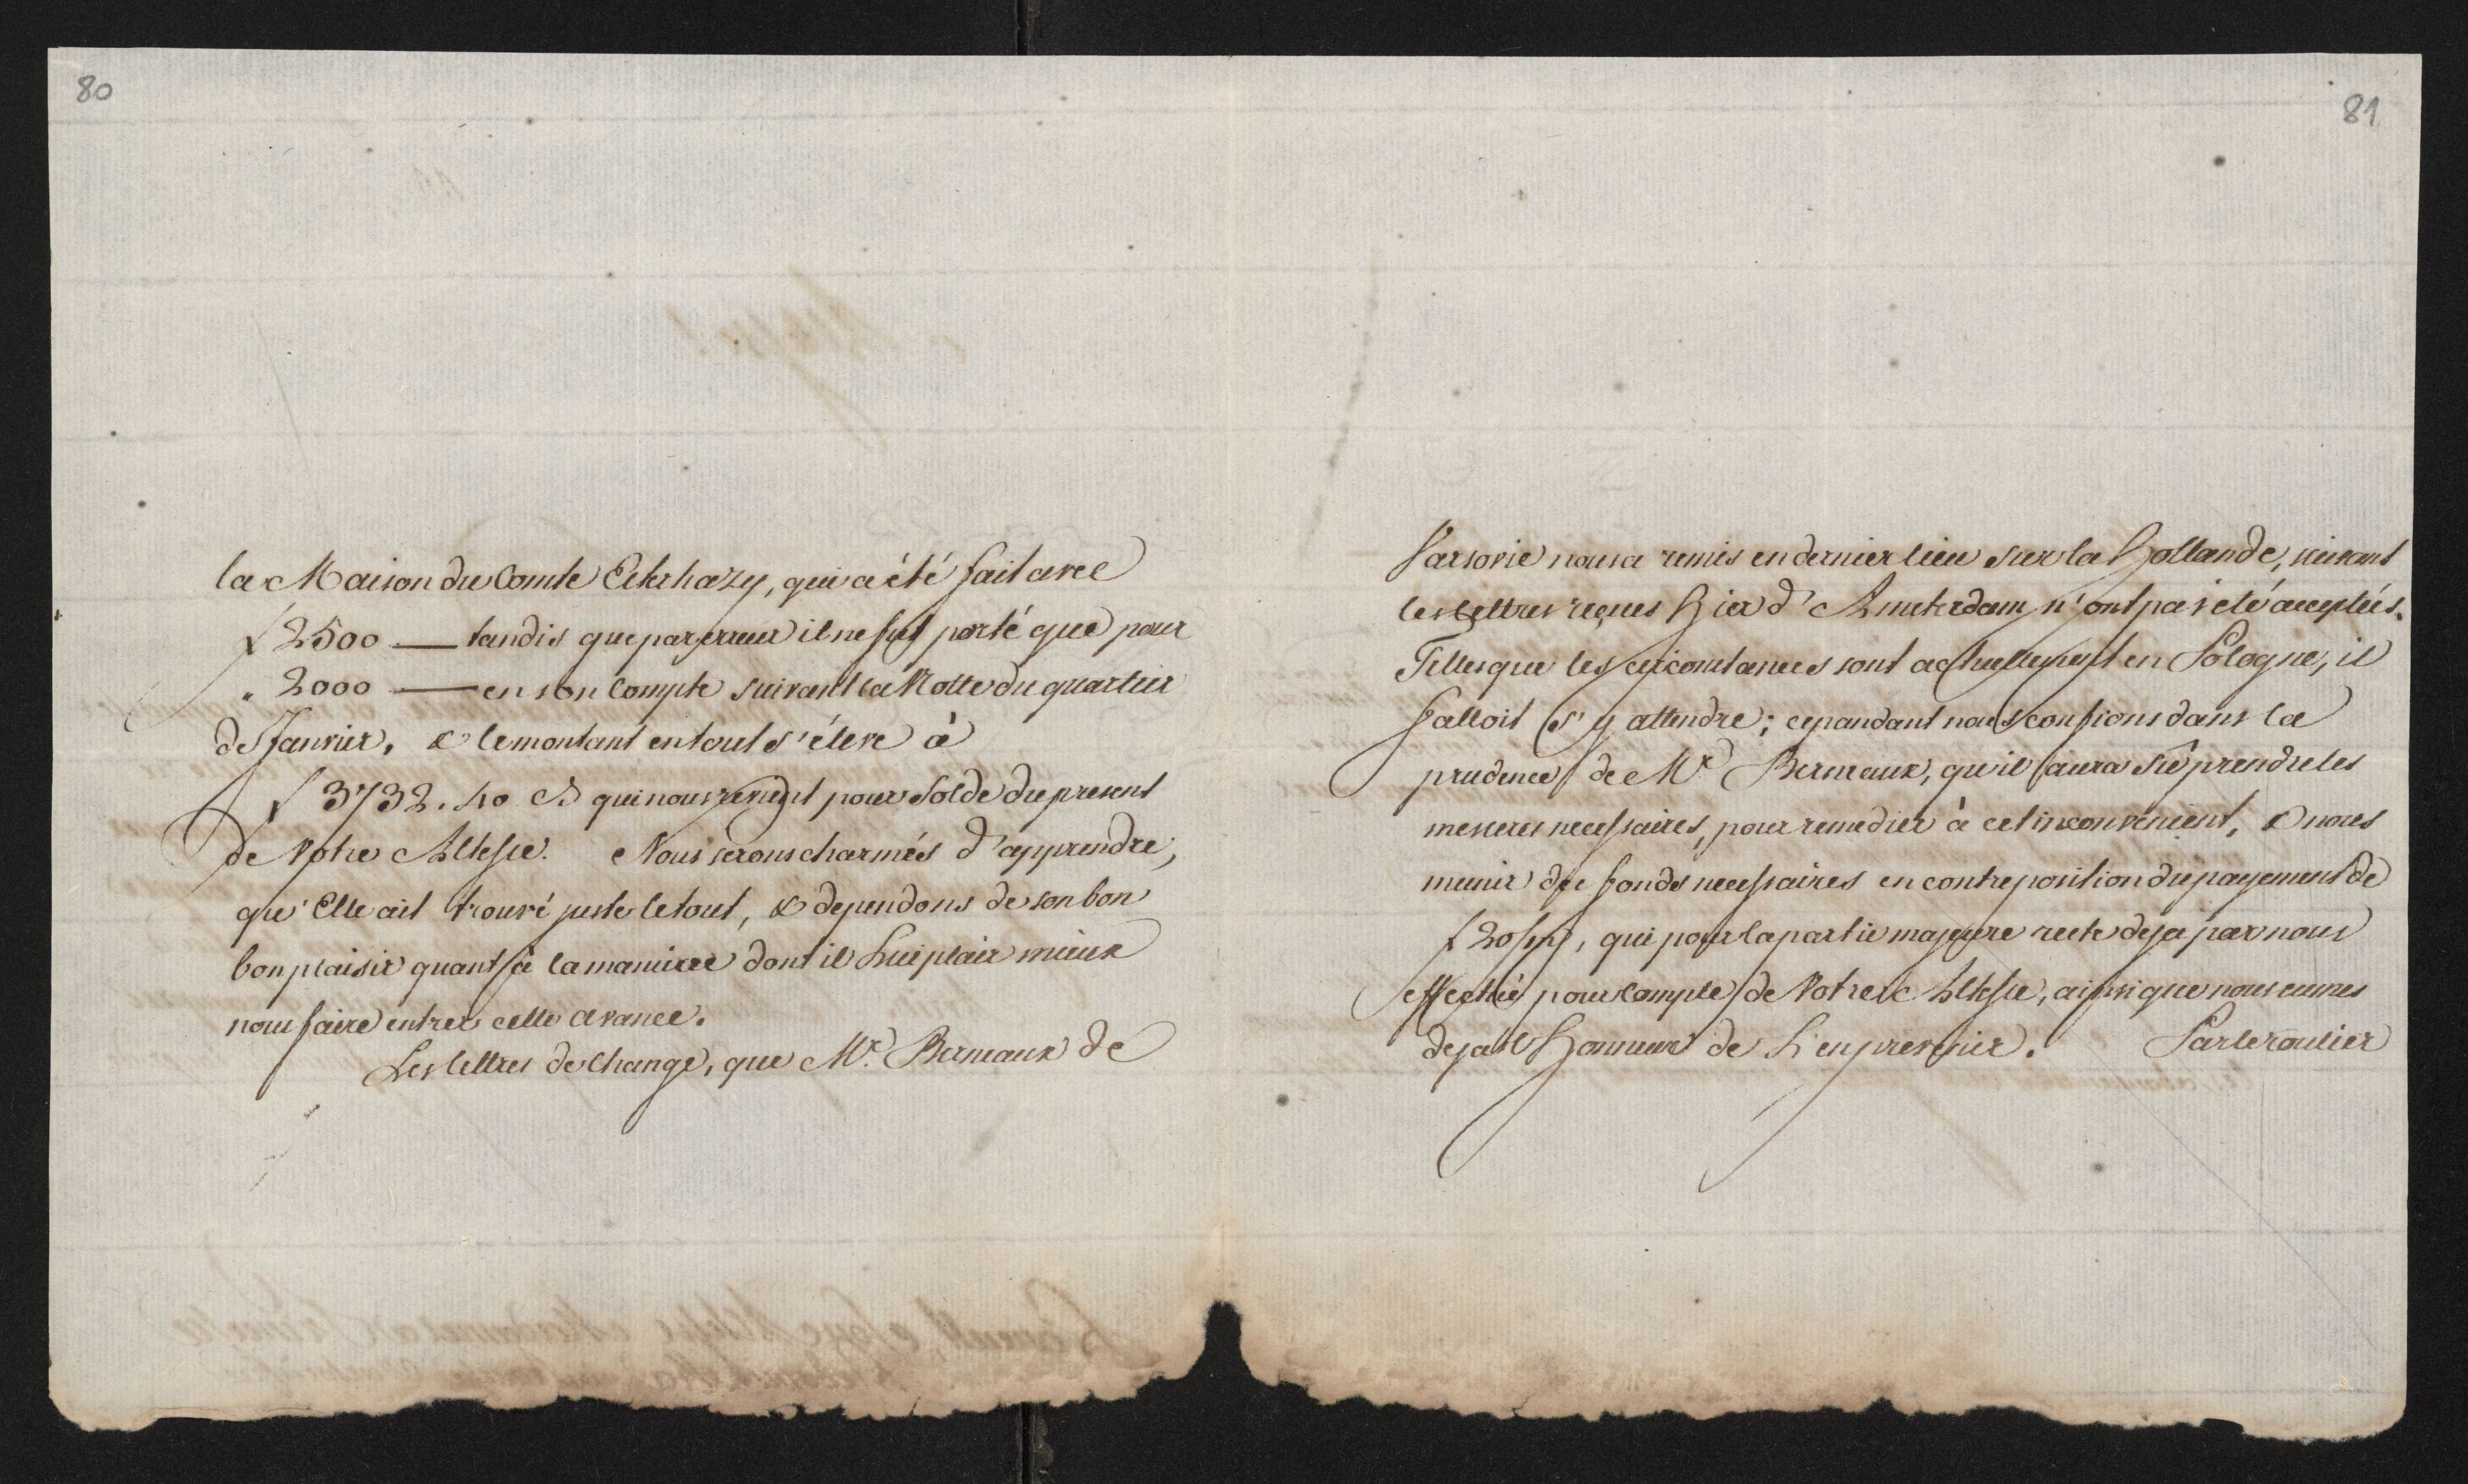 80
la Maison du Comte Esterhazy, qui a été fait avec
f 2500 — tandis que par erreur il ne fut porté que pour
" 2000 — en son Compte suivant la Notte du quartier
de Janvier, & le montant en tout s'éleve à
f 3732.40 qui nous revient pour Solde du present
de Votre Altesse. Nous serons charmés d'apprendre,
qu'Elle ait trouvé juste le tout, & dependons de son bon
bon plaisir quant à la maniere dont il Lui plair mieux
nous faire entrer cette avance.
Les lettres de Change, que Mr. Berneaux de
81
Varsovie nous a remis en dernier lieu sur la Hollande, suivant
les lettres reçues Hier d'Amsterdam n'ont pas eté acceptés.
Telles que les circonstances sont actuellement en Pologne, il
falloit s'y attendre; cependant nous confions dans la
prudence de Mr. Berneaux, qu'il aura sû prendre les
mesures necessaires, pour remedier à cet inconvenient, & nous
munir des fonds necessaires en contreposition du payement de
f 20/m, qui pour la partie majeure reste deja par nous
effectué pour compte de Votre Altesse, ainsi que nous eumes
deja l'Honneur de L'en prevenir. Par le roulier